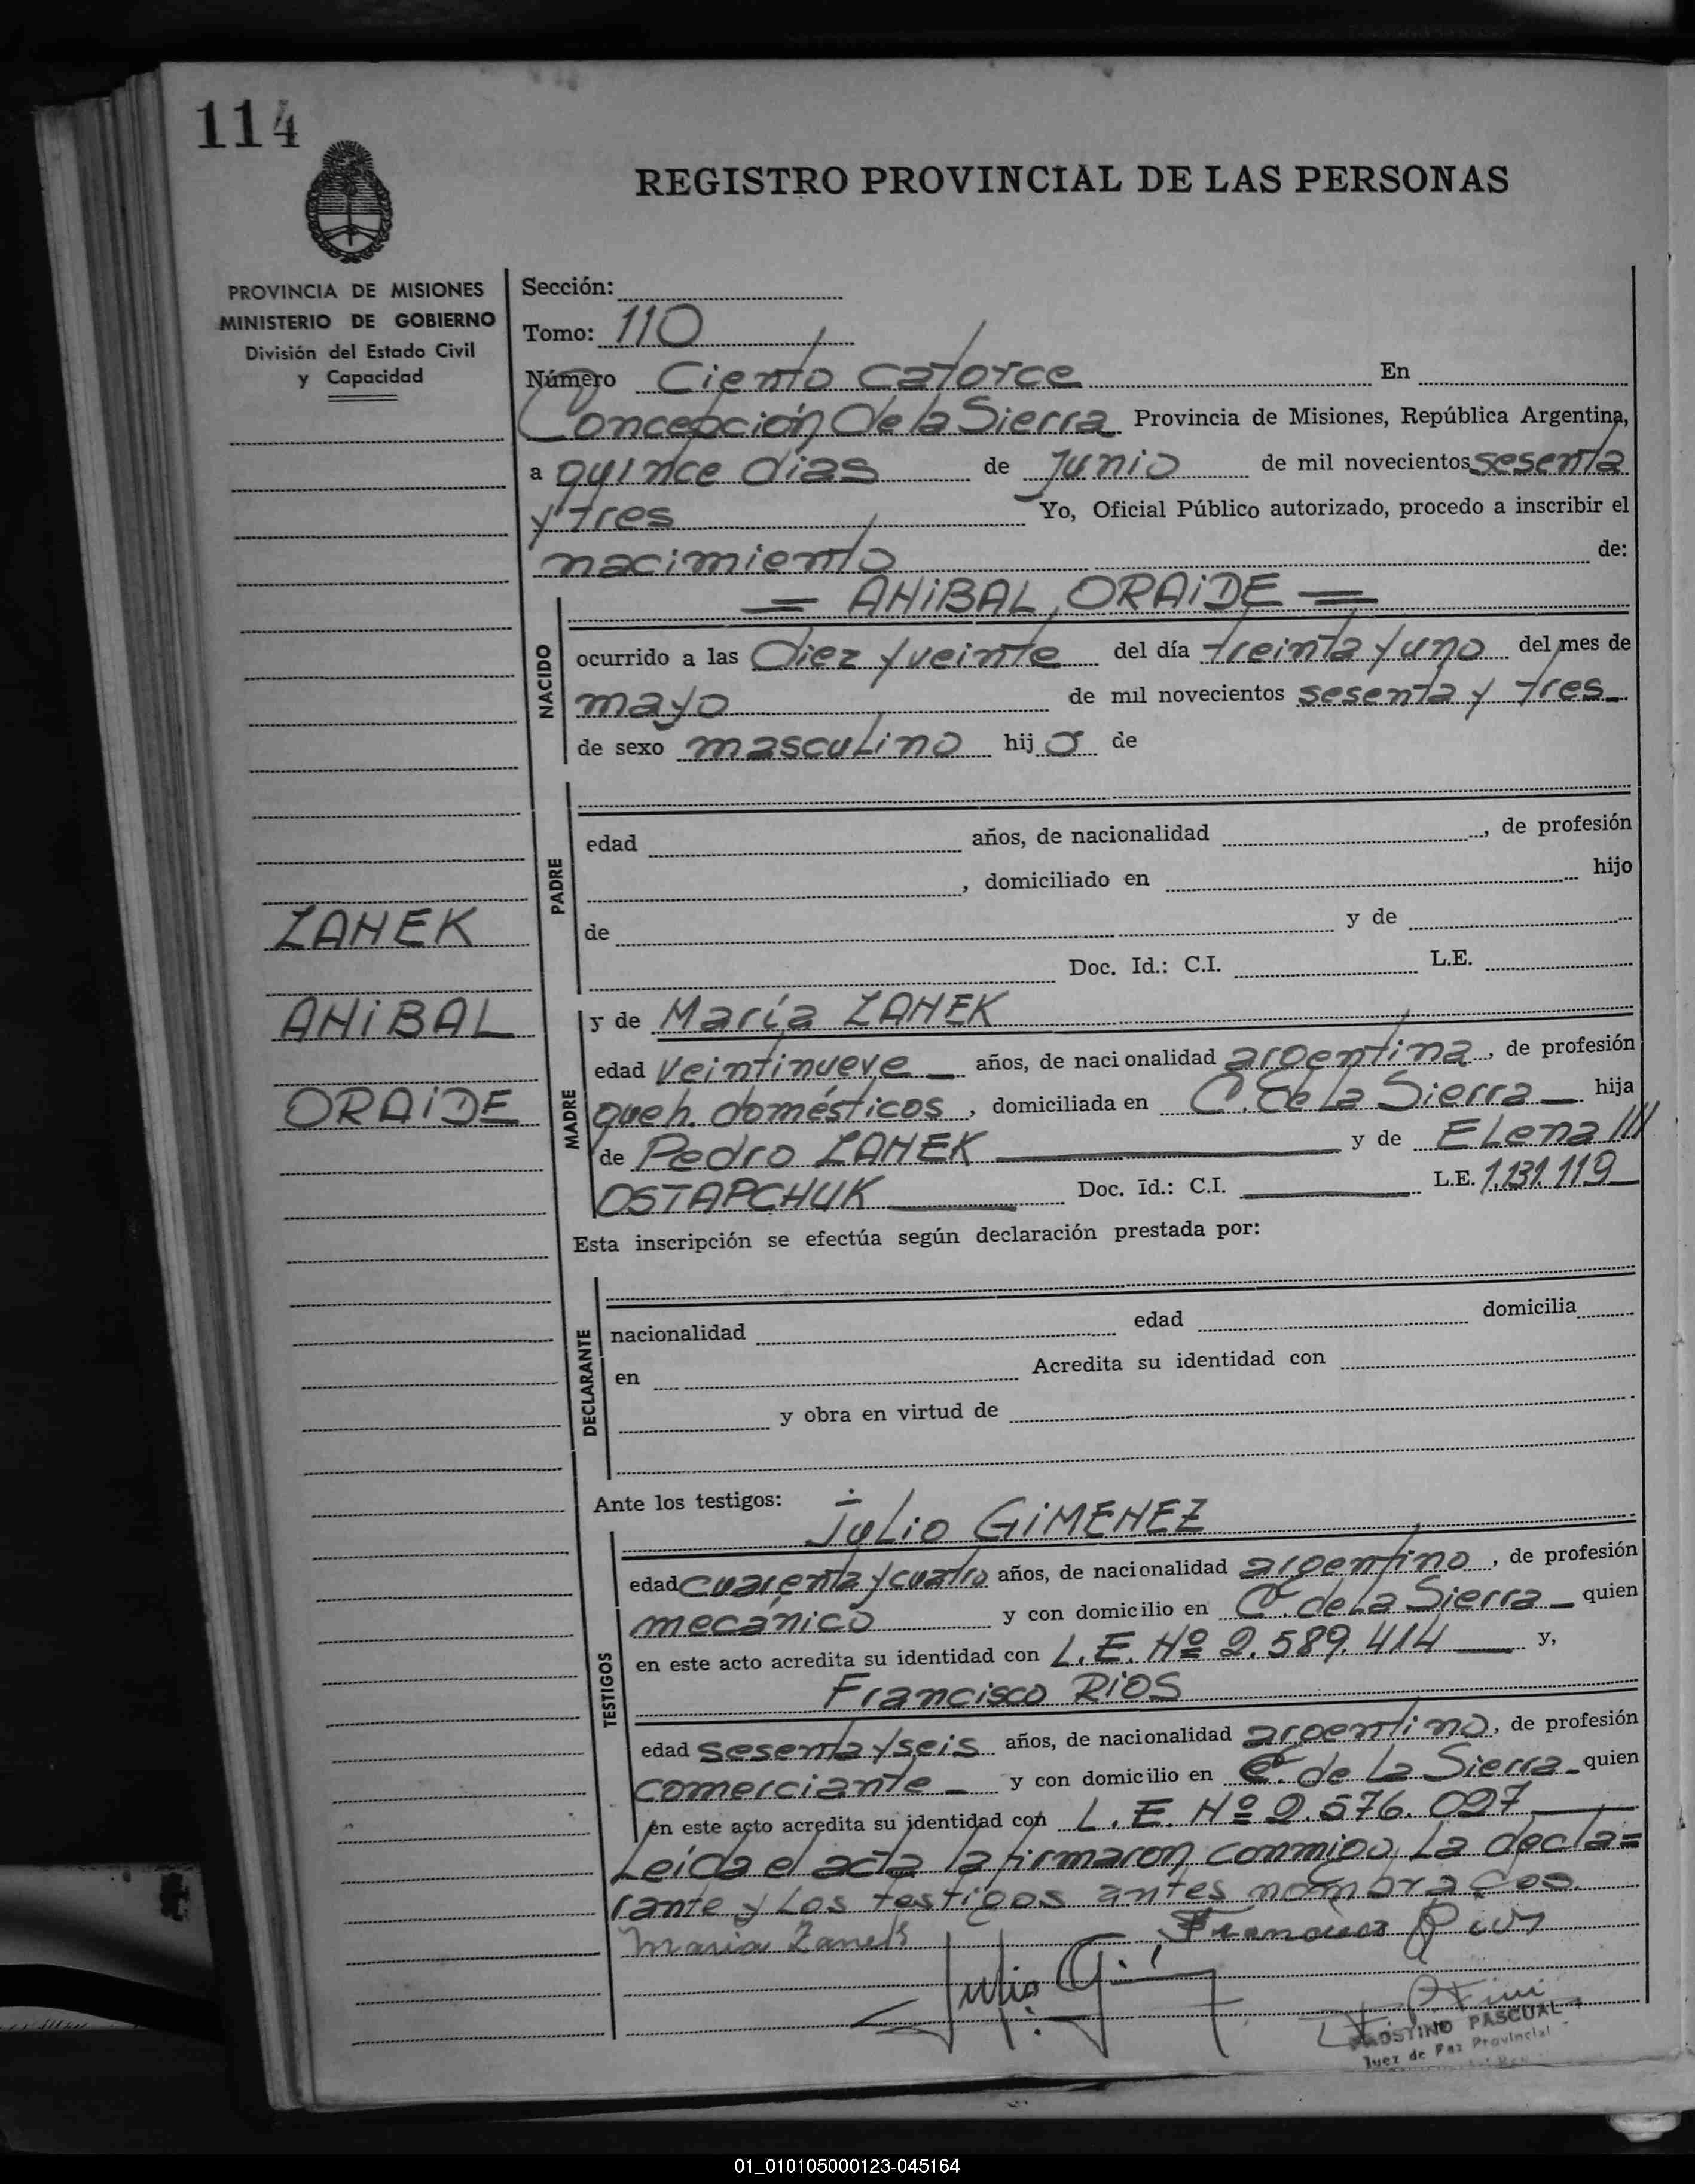 114
REGISTRO PROVINCIAL DE LAS PERSONAS
PROVINCIA DE MISIONES
MINISTERIO DE GOBIERNO
División del Estado Civil
y Capacidad
ZANEK
ANIBAL
ORAIDE
Sección:
Tomo: 110
Número Ciento catorce En
Concepción de la Sierra Provincia de Misiones, República Argentina,
a quince dias de Junio de mil novecientos sesenta
y tres Yo, Oficial Público autorizado, procedo a inscribir el
nacimiento de:
= ANIBAL, ORAIDE =
NACIDO
ocurrido a las Diez y veinte del día treinta y uno del mes de
mayo de mil novecientos sesenta y tres
de sexo masculino hijo de
PADRE
edad años, de nacionalidad , de profesión
, domiciliado en hijo
de y de
Doc. Id.: C.I. L.E.
MADRE
y de María ZANEK
edad veintinueve años, de nacionalidad argentina, de profesión
queh. domésticos, domiciliada en C. de la Sierra hija
de Pedro ZANEK y de Elena ///
OSTAPCHUK Doc. Id.: C.I. L.E. 1.131.119
Esta inscripción se efectúa según declaración prestada por:
DECLARANTE
nacionalidad edad domicilia
en Acredita su identidad con
y obra en virtud de
Ante los testigos: Julio GIMENEZ
TESTIGOS
edad cuarenta y cuatro años, de nacionalidad argentino, de profesión
mecánico y con domicilio en C. de la Sierra quien
en este acto acredita su identidad con L.E. Nº 2.589.414 y,
Francisco RIOS
edad sesenta y seis años, de nacionalidad argentino, de profesión
comerciante y con domicilio en C. de la Sierra quien
en este acto acredita su identidad con L.E. Nº 2.576.027
Leída el acta la firmaron conmigo, la decla=
rante y los testigos antes nombrados.
Maria Zanek Francisco Rios
Julio
PASCUAL
Juez de Paz Provincial
01_010105000123-045164